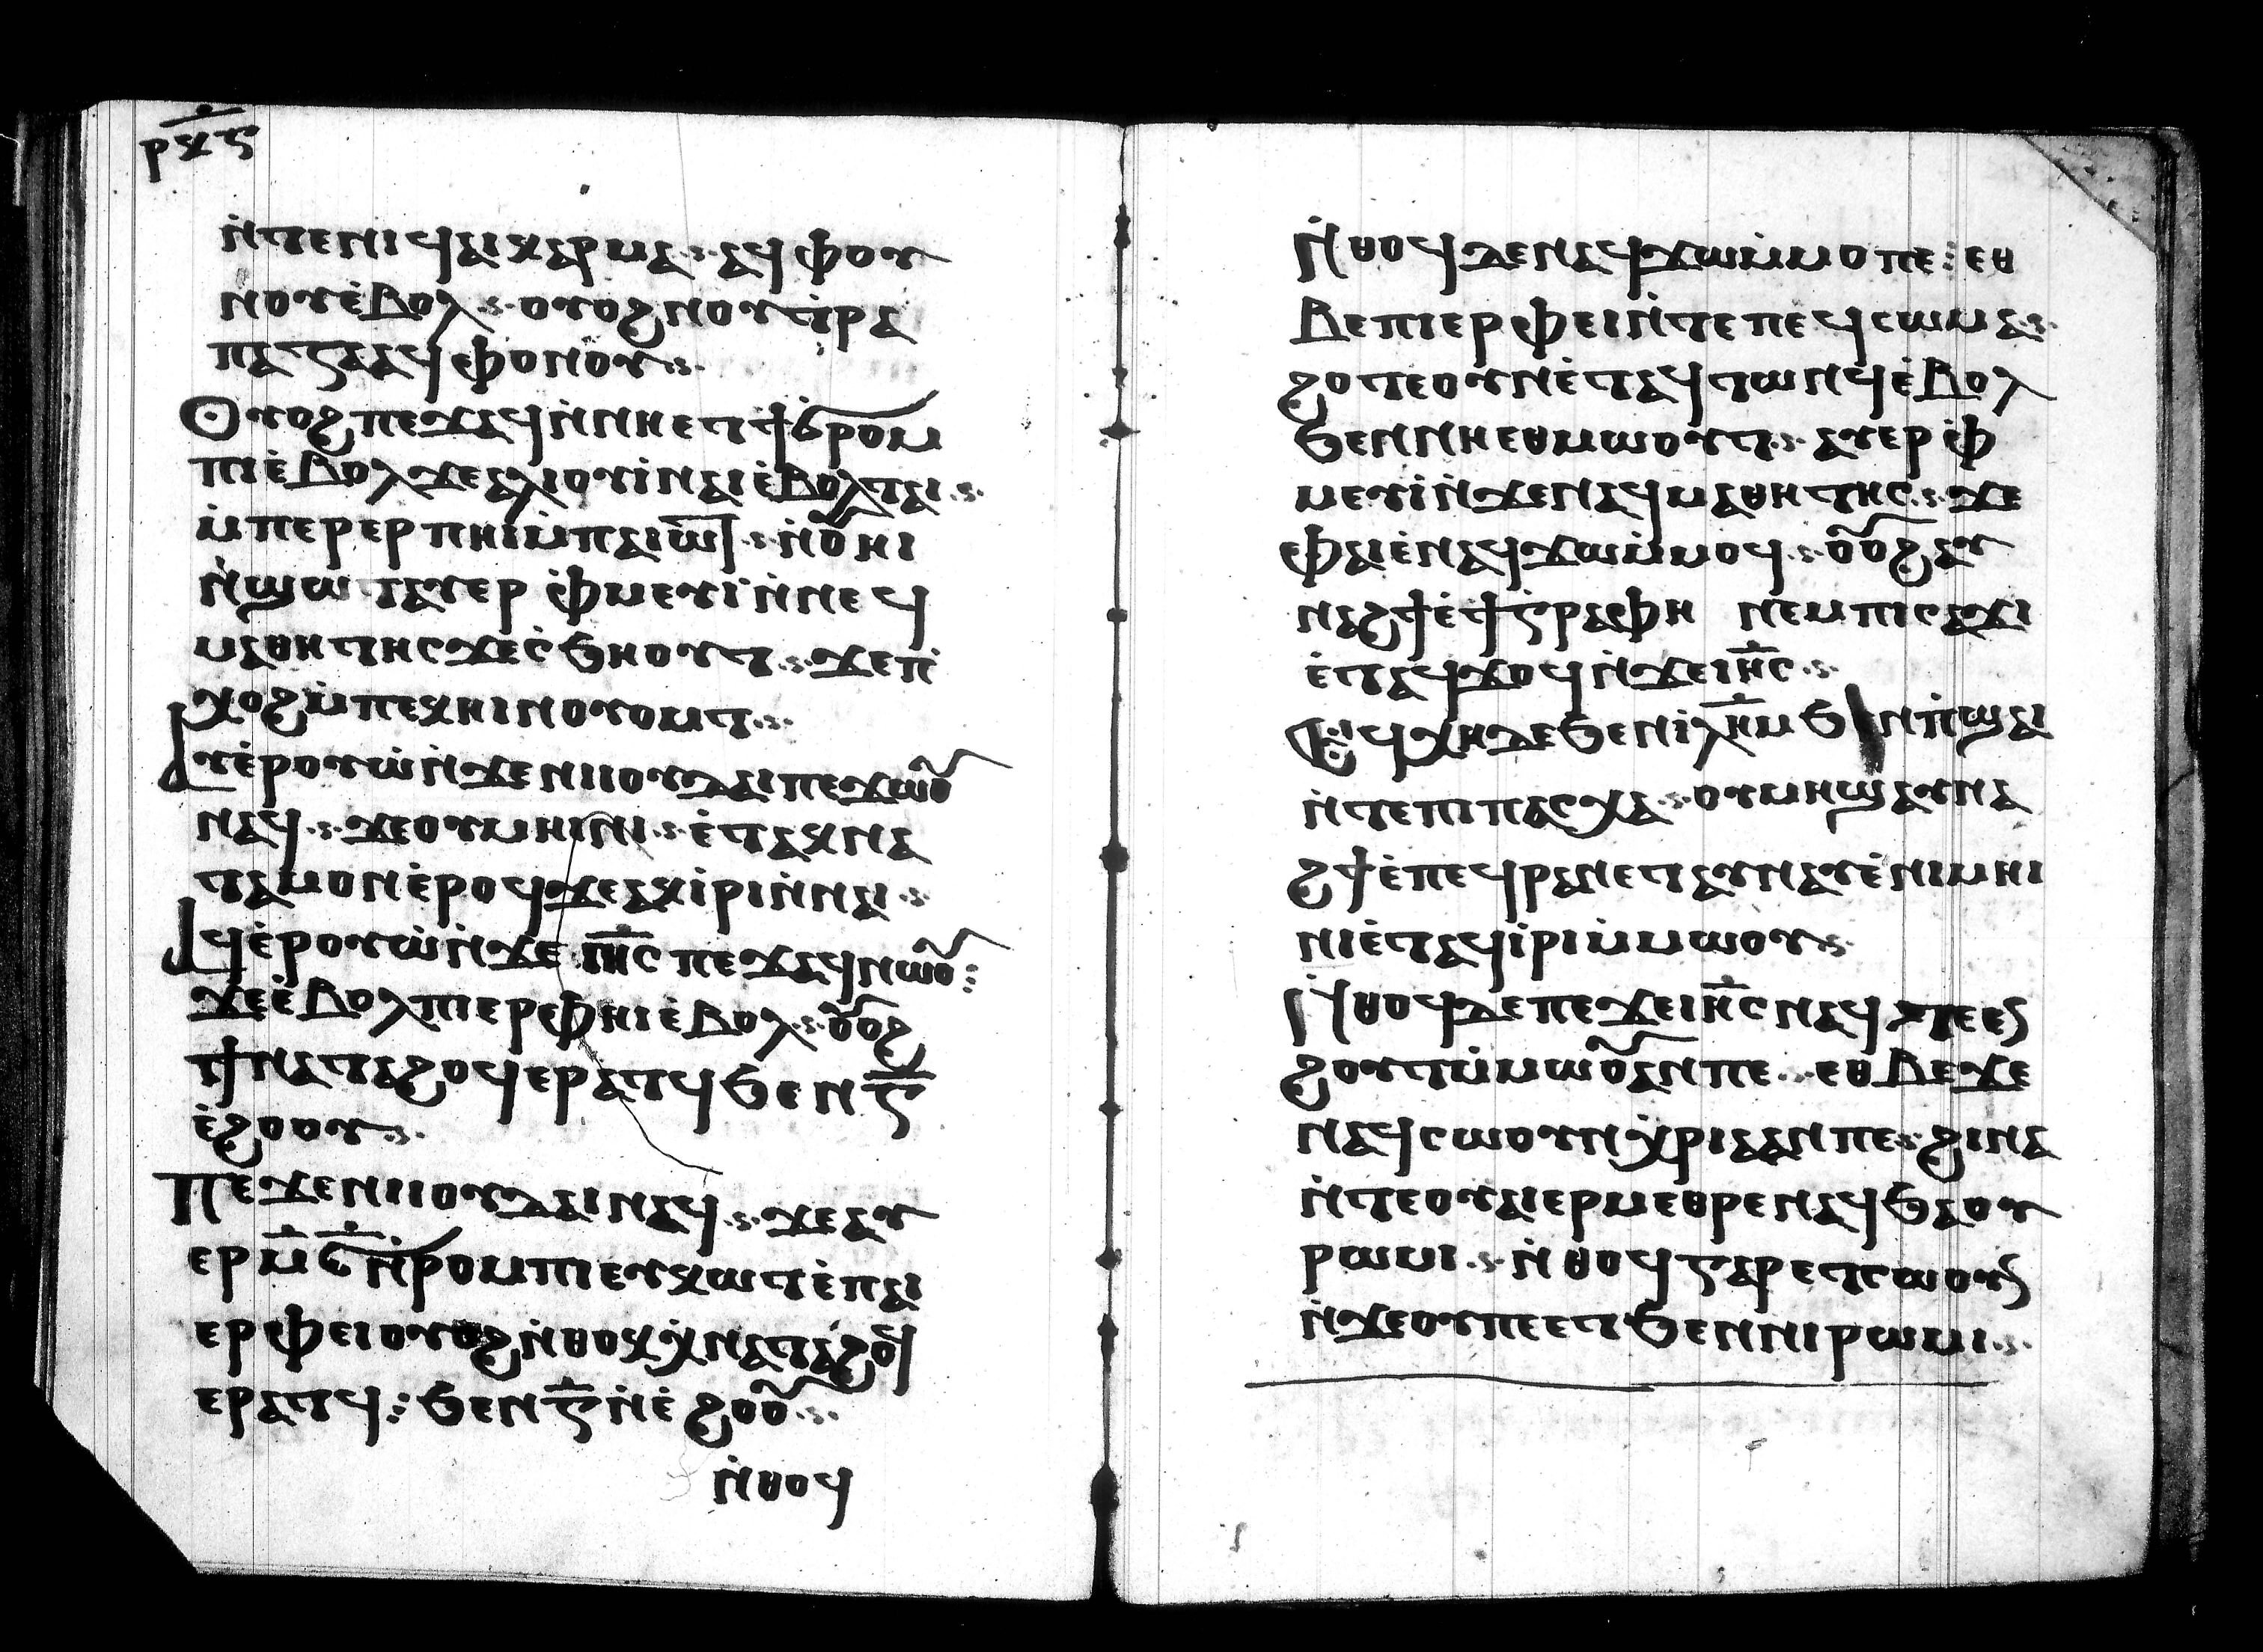 ⲣⲕ̅ⲋ
ⲛ̀ⲧⲉⲛⲓϥⲁⲓⲕⲉⲣⲙⲁ ⲁϥⲫⲟⲛ
ⲛⲟⲩⲉ̀ⲃⲟⲗ ⲟⲩⲟϩ ⲛⲟⲩⲧ̀ⲣⲁ
ⲡⲁⲍⲁⲁϥⲫⲟⲛⲟⲩ
Ⲟⲩⲟϩ ⲡⲉϫⲁϥ ⲛ̀ⲛⲏⲉⲧϯϭ̀ⲣⲟⲙ
ⲡⲓⲉ̀ⲃⲟⲗ ϫⲉ ⲁⲗⲓⲟⲩⲓ̀ⲛⲁⲓ ⲉ̀ⲃⲟⲗⲧⲁⲓ
ⲙ̀ⲡⲉⲣⲉⲣⲡⲏⲓⲙ̀ⲡⲁⲓⲱ̅ⲧ ⲛ̀ⲟ̅ⲏⲓ
ⲛ̀ϣⲱⲧ ⲁⲩⲉⲣ ⲫ̀ⲙⲉⲩⲓ̀ⲛ̀ⲛⲉϥ
ⲙⲁⲑⲏⲧⲏⲥ ϫⲉ ⲥ̀ϧⲏⲟⲩⲧ ϫⲉ ⲡ̀
ⲭⲟϩ ⲙ̀ⲡⲉⲕⲏⲓ ⲛⲟⲩⲟⲙⲧ
Ⲁⲩⲉ̀ⲣⲟⲩⲱ̀ ⲛ̀ϫⲉ ⲛⲓⲓⲟⲩⲇⲁⲓ ⲡⲉϫⲱⲟ̅
ⲛⲁϥ ϫⲉ ⲟⲩⲙⲏⲓⲛⲓ ⲉ̀ⲧⲁⲕⲛⲁ
ⲧⲁⲙⲟⲛ ⲉ̀ⲣⲟϥ ϫⲉ ⲁⲕⲓ̀ⲣⲓ ⲛ̀ⲛⲁⲓ
Ⲁϥⲉ̀ⲣⲟⲩⲱ̀ ⲛ̀ϫⲉ ⲓⲏ̅ⲥ ⲡⲉϫⲁϥ ⲛⲱⲟ̅
ϫⲉ ⲉ̀ⲃⲟⲗ ⲡⲓⲉⲣⲫⲏⲓ ⲉ̀ⲃⲟⲗ ⲟ̅ⲟϩ
ϯⲛⲁⲧⲁϩⲟϥ ⲉⲣⲁⲧϥ ϧⲉⲛ ⲅ̅
ⲉ̀ϩⲟⲟⲩ
Ⲡⲉϫⲉ ⲛⲓⲓⲟⲩⲇⲁⲓ ⲛⲁϥ ϫⲉ ⲁⲩ
ⲉⲣ ⲙ̅ⲋ̅ ⲛ̀ⲣⲟⲙⲡⲓ ⲉⲩⲕⲱⲧ ⲉ̀ⲡⲁⲓ
ⲉⲣⲫⲉⲓ ⲟⲩⲟϩ ⲛ̀ⲑⲟⲕ ⲭ̀ⲛⲁⲧⲁϩⲟϥ
ⲉⲣⲁⲧϥ ϧⲉⲛ ⲅ̅ ⲛ̀ⲉ̀ϩⲟⲟ̅
ⲛ̀ⲑⲟϥ
ⲛ̀ⲑⲟϥ ⲇⲉ ⲛⲁϥϫⲱ ⲙ̀ⲙⲟ ⲡⲉ ⲉⲑ
ⲃⲉ ⲡⲓⲉⲣⲫⲉⲓ ⲛ̀ⲧⲉ ⲡⲉϥⲥⲱⲙⲁ
ϩⲟⲧⲉ ⲟⲩⲛ ⲉ̀ⲧⲁϥⲧⲱⲛϥ ⲉ̀ⲃⲟⲗ
ϧⲉⲛ ⲛⲏⲉⲑⲙⲱⲟⲩⲧ ⲁⲩⲉⲣⲫ̀
ⲙⲉⲩⲓ̀ ⲛ̀ϫⲉ ⲛⲁϥⲙⲁⲑⲏⲧⲏⲥ ϫⲉ
ⲉⲫⲁⲓ ⲉ̀ⲛⲁϥϫⲱ ⲙ̀ⲙⲟϥ ⲟ̅ⲟϩ ⲁⲩ
ⲛⲁϩϯ ⲉ̀ϯⲅ̀ⲣⲁⲫⲏ ⲛⲉⲙ ⲡⲓⲥⲁϫⲓ
ⲉ̀ⲧⲁϥϫⲟϥ ⲛ̀ϫⲉ ⲓⲏ̅ⲥ
Ⲉϥⲭⲏ ⲇⲉ ϧⲉⲛ ⲓⲗⲏ̅ⲙ ϧⲉⲛ ⲡ̀ϣⲁⲓ
ⲛ̀ⲧⲉ ⲡⲓⲡⲁⲥⲭⲁ ⲟⲩⲙⲏϣ ⲁⲩⲛⲁ
ϩϯ ⲉ̀ⲡⲉϥⲣⲁⲛ ⲉⲧⲁⲩⲛⲁⲩ ⲉ̀ⲛⲓⲙⲏⲓ
ⲛⲓ ⲉ̀ⲧⲁϥⲓ̀ⲣⲓ ⲙ̀ⲙⲱⲟⲩ
ⲛ̀ⲑⲟϥ ⲇⲉ ⲡⲉ ϫⲉ ⲓⲏ̅ⲥ ⲛⲁϥ
ϩⲟⲩⲧ ⲙ̀ⲙⲱⲟ̅ ⲁⲛ ⲡⲉ ⲉⲑⲃⲉ ϫⲉ
ⲛⲁϥⲥⲱⲟⲩⲛ ⲭ̀ⲣⲓⲁ ⲁⲛ ⲡⲉ ϩⲓⲛⲁ
ⲛ̀ⲧⲉ ⲟⲩⲁⲓ ⲉⲣⲙⲉⲑⲣⲉ ⲛⲁϥ ϧⲁ ⲟⲩ
ⲣⲱⲙⲓ ⲛ̀ⲑⲟϥ ⲅⲁⲣ ⲉⲧⲥⲱⲟⲩⲛ
ⲛ̀ϫⲉ ⲟⲩ ⲡⲉⲉⲧ ϧⲉⲛ ⲛⲓⲣⲱⲙⲓ